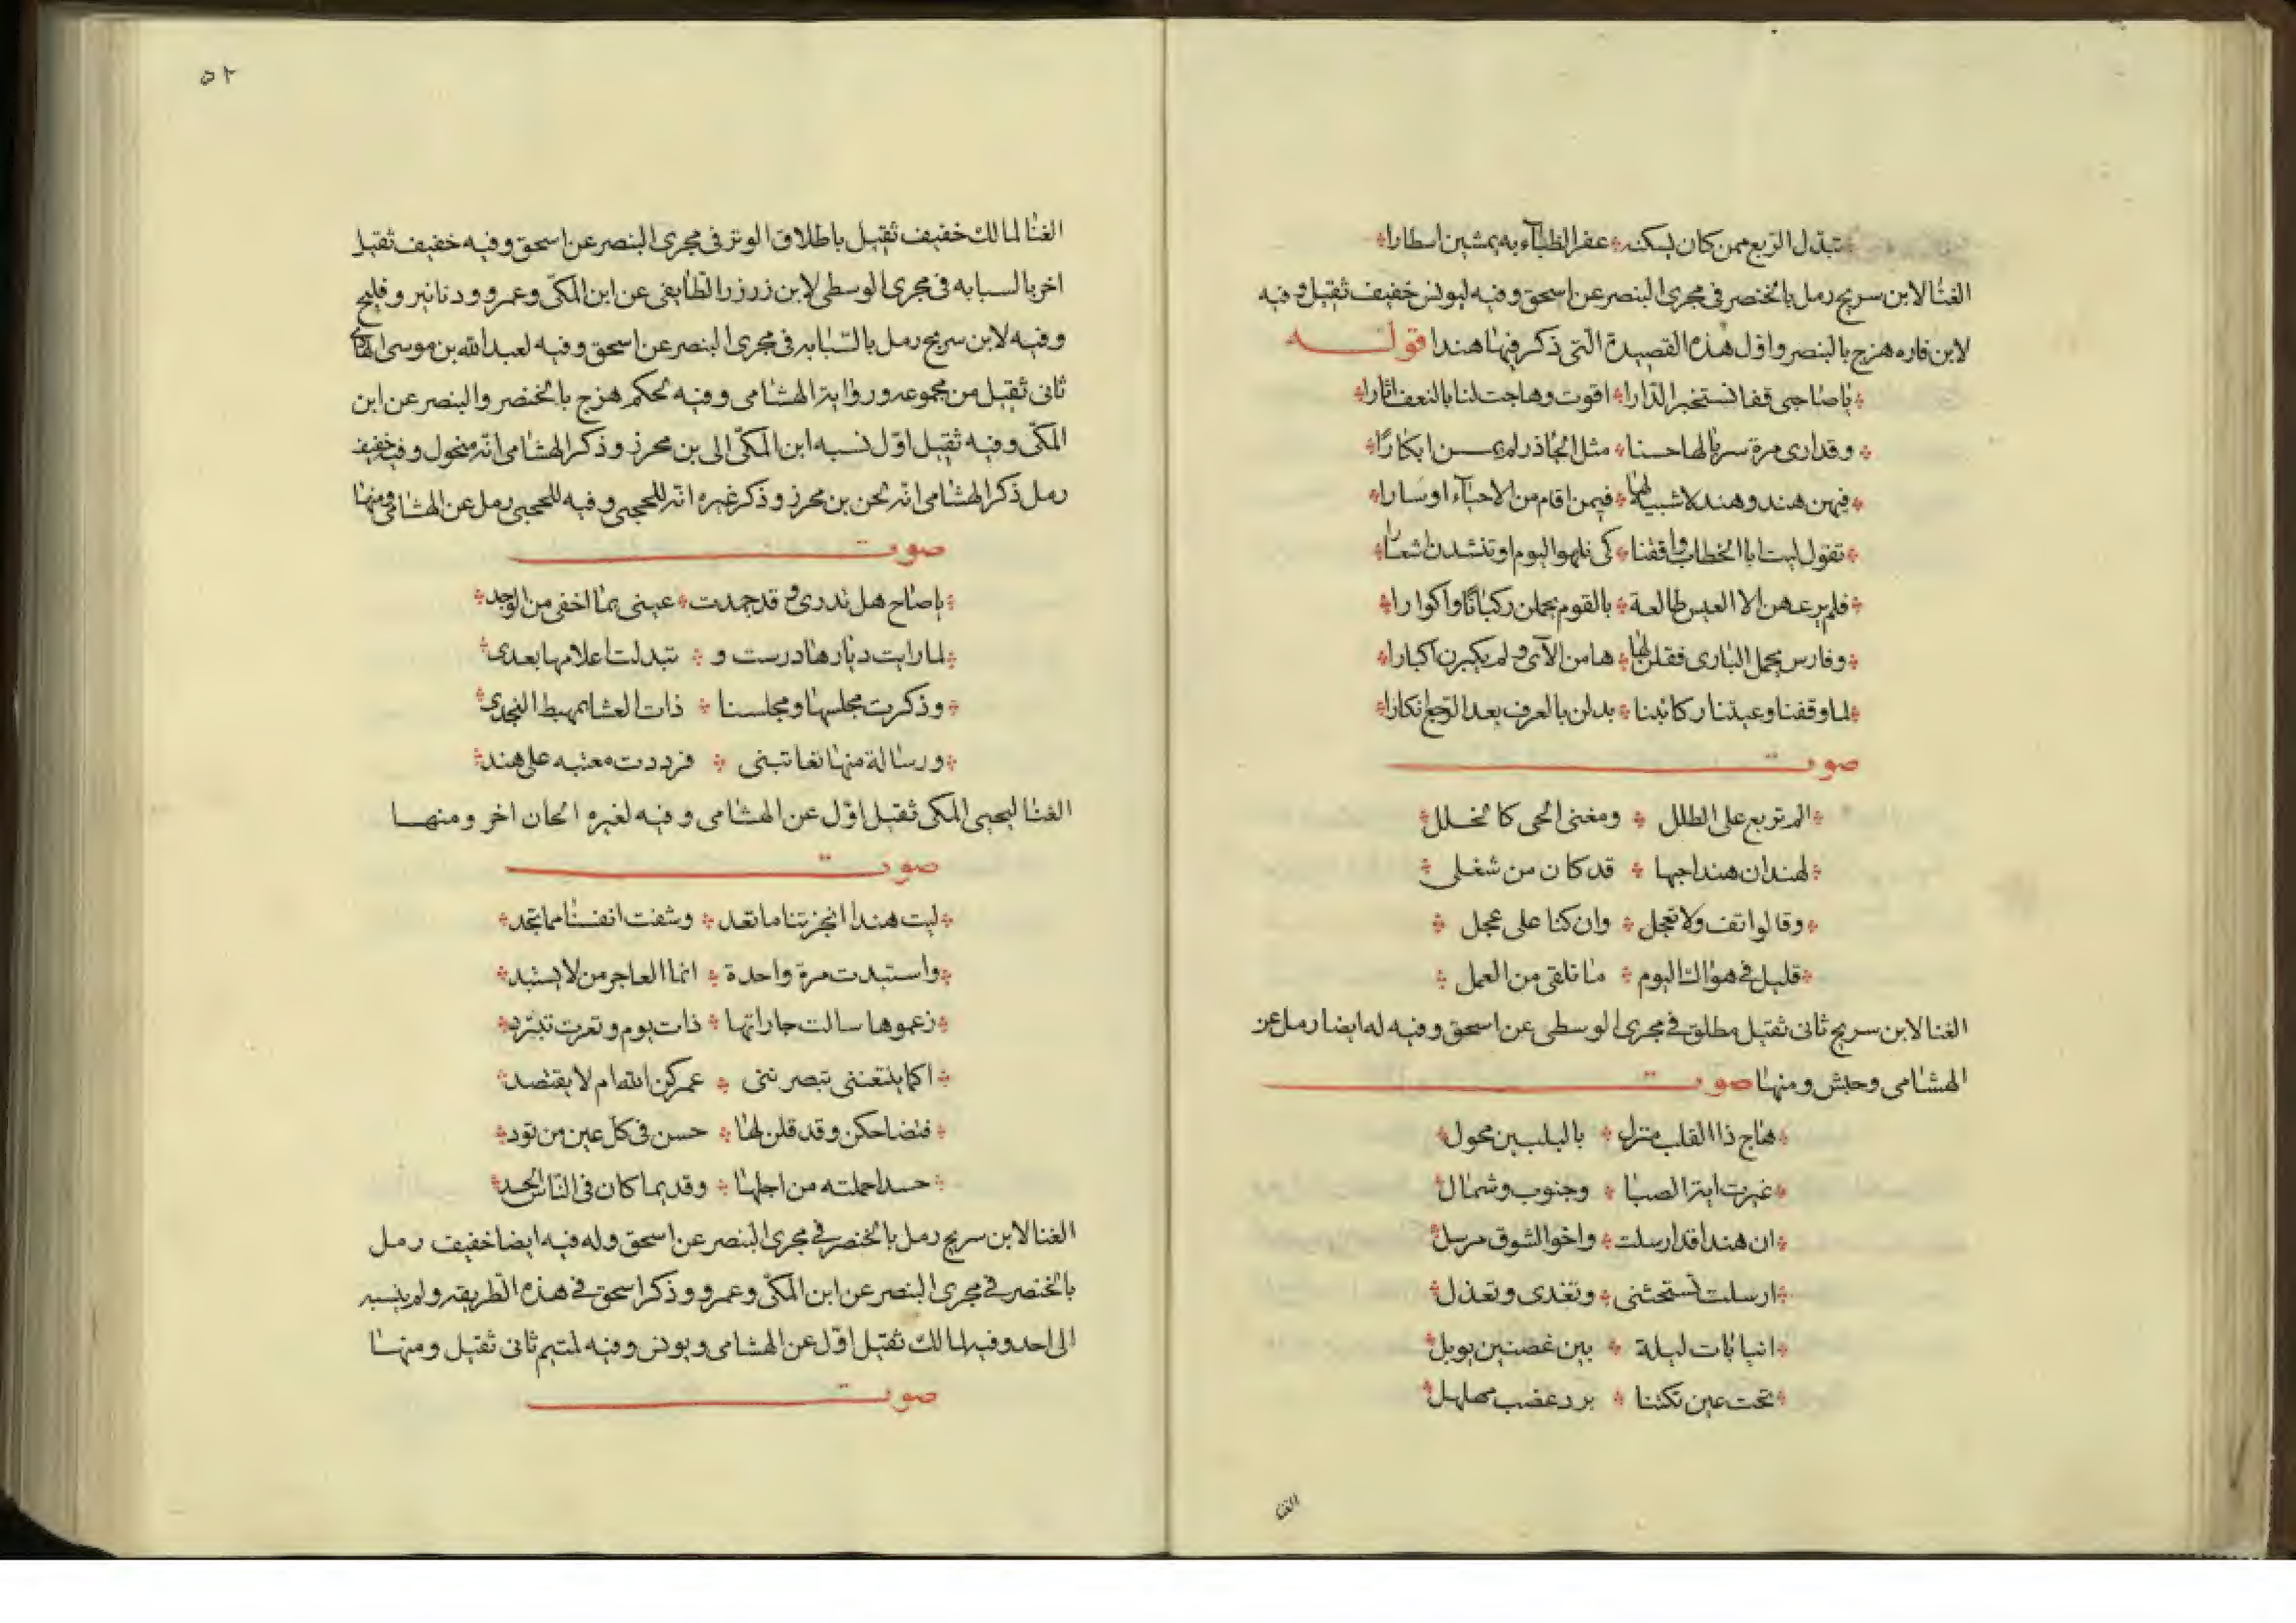 تبدل الربع ممن كان يسكنه * عفر الظبآء به يمشين اسطارا
الغنا لابن سريج رمل بالخنصر في مجرى البنصر عن اسحق وفيه ليونس خفيف ثقيل وفيه
لابن فاره هزج بالبنصر واول هذه القصيدة التي ذكر فيها هندا قوله
ياصاحبي قفا نستخبر الدارا * اقوت وهاجت لنا بالنعف اثارا
وقد ارى مرة سربا لها حسنا * مثل الجاذر لم يمسسن ابكارا
فيهن هند وهند لا شبيه لها * فيمن اقام من الاحيآء او سارا
تقول ليت ابا الخطاب وافقنا * كي نلهو اليوم او تنشدن اشعارا
فلم يرعهن الا العيس طالعة * بالقوم يحملن ركبانا واكوارا
وفارس يحمل البازى فقلن لها * ها من الآتى ولم يكبرن اكبارا
لما وقفنا وعيتنا ركائبنا * بدلن بالعرف بعد الرجع نكارا
صوت
الم تربع على الطلل * ومغنى الحى كالخلل
لهند ان هندا حبها * قد كان من شغلى
وقالوا تقف ولا تعجل * وان كنا على عجل
قليل في هواك اليوم * ما نلقى من العمل
الغنا لابن سريج ثانى ثقيل مطلق في مجرى الوسطى عن اسحق وفيه له ايضا رمل عن
الهشامى وحبش ومنها صوت
هاج ذا القلب منزل * بالبليين محول
غيرت ايته الصبا * وجنوب وشمال
ان هندا قد ارسلت * واخو الشوق مرسل
ارسلت تستحثنى * وتفدى وتعذل
انيا بات ليلة * بين غصنين يوبل
تحت عين تكننا * برد عضب مهلهل
الغنا
٥٢
الغنا لمالك خفيف ثقيل باطلاق الوتر في مجرى البنصر عن اسحق وفيه خفيف ثقيل
اخر بالسبابه في مجرى الوسطى لابن زرزر الطايفى عن ابن المكى وعمرو ودنانير وفليح
وفيه لابن سريج رمل بالسبابه في مجرى البنصر عن اسحق وفيه لعبد الله بن موسى الهادي
ثانى ثقيل من مجموعه ورواية الهشامى وفيه لحكم هزج بالخنصر والبنصر عن ابن
المكى وفيه ثقيل اول نسبه ابن المكى الى بن محرز وذكر الهشامى انه منحول وفيه خفيف
رمل ذكر الهشامى انه لحن بن محرز وذكر غيره انه للحجبى وفيه للحجبى رمل عن الهشامى ومنها
صوت
ياصاح هل تدرى وقد جمدت * عينى بما اخفى من الوجد
لما رايت ديارها درست و * تبدلت اعلامها بعدى
وذكرت مجلسها ومجلسنا * ذات العشا بمهبط النجدى
ورسالة منها تعاتبنى * فرددت معتبه على هند
الغنا ليحيى المكى ثقيل اول عن الهشامى وفيه لغيره الحان اخر ومنها
صوت
ليت هندا انجزتنا ما تعد * وشفت انفسنا مما تجد
واستبدت مرة واحدة * انما العاجز من لا يستبد
زعموها سالت جاراتها * ذات يوم وتعرت تبترد
اكما ينعتنى تبصرننى * عمركن الله ام لا يقتصد
فتضاحكن وقد قلن لها * حسن فى كل عين من تود
حسدا حملته من اجلها * وقديما كان فى الناس الحسد
الغنا لابن سريج رمل بالخنصر في مجرى البنصر عن اسحق وله فيه ايضا خفيف رمل
بالخنصر في مجرى البنصر عن ابن المكى وعمرو وذكر اسحق في هذه الطريقه ولم ينسبه
الى احد وفيه لمالك ثقيل اول عن الهشامى ويونس وفيه لمتيم ثانى ثقيل ومنها
صوت